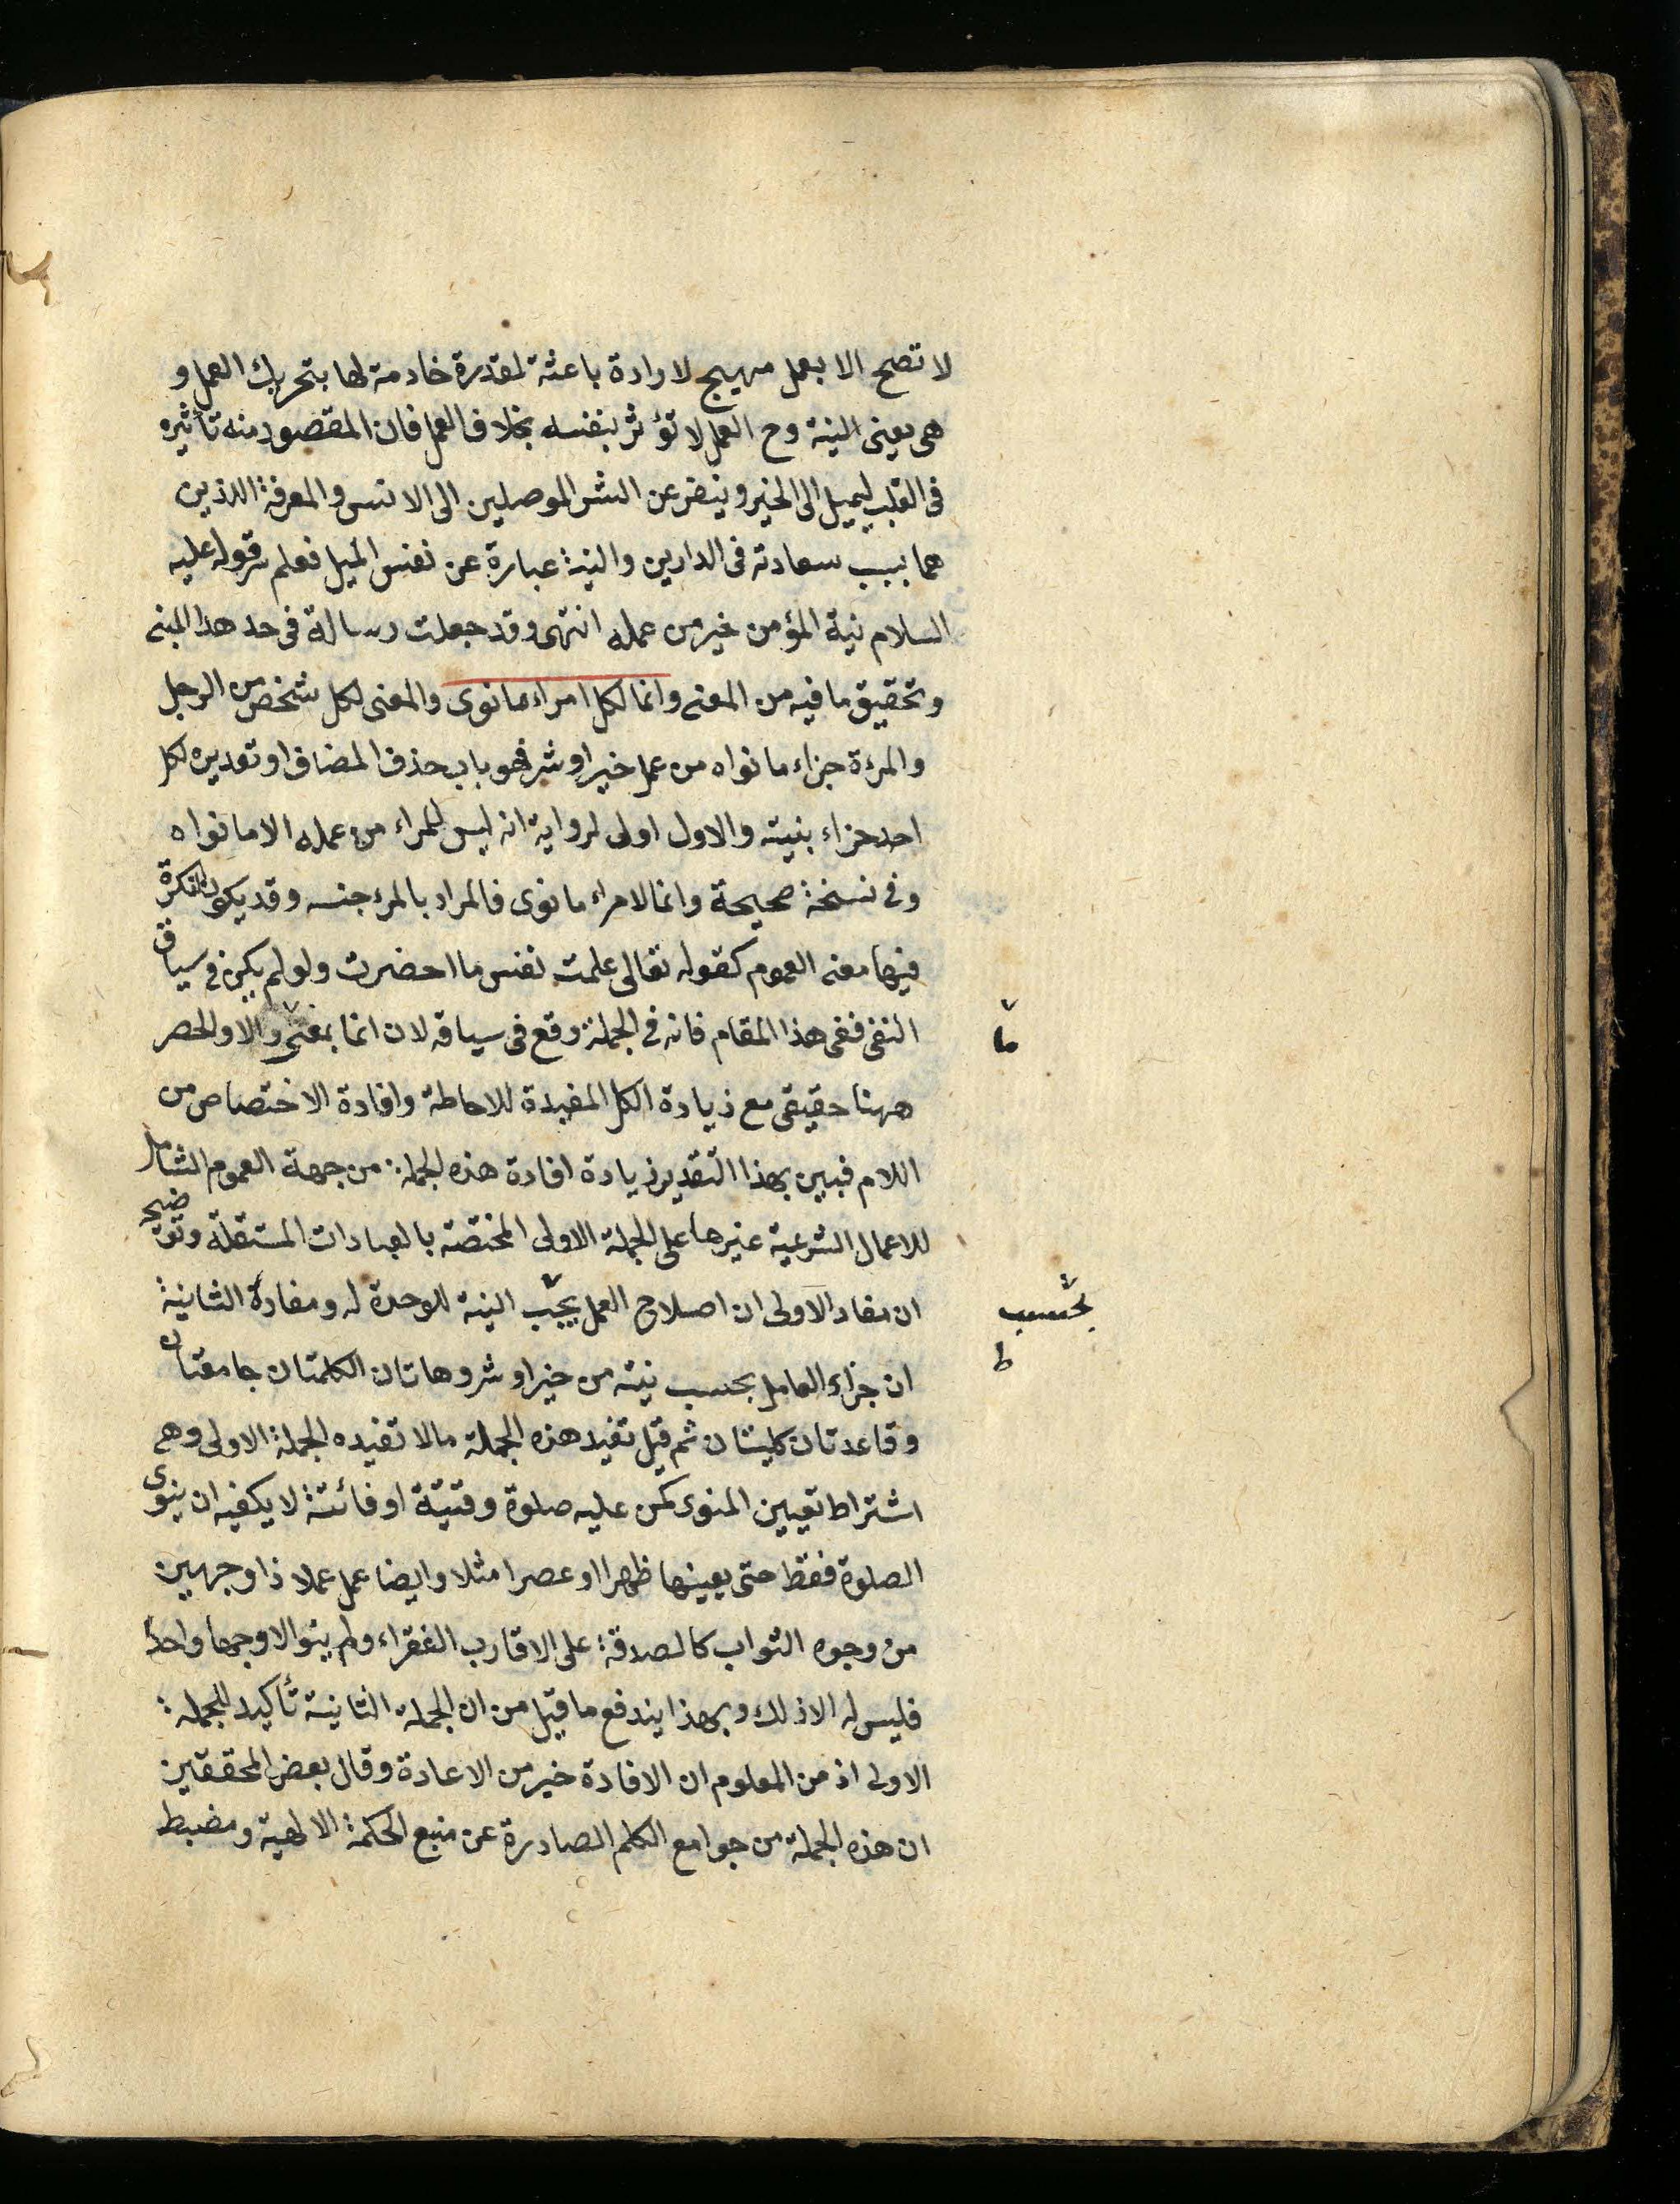 لا تصح الا بعمل مهيج لارادة باعثة لمقدرة خادمة لها بتحريك العمل و
هى يعنى النية وح العمل لا تؤثر بنفسه بخلاف العمل فان المقصود منه تأثيره
فى القلب ليميل الى الخير وينفر عن الشر الموصلين الى الانس والمعرفة اللذين
هما سبب سعادته فى الدارين والنية عبارة عن نفس الميل فعلم سر قوله عليه
السلام نية المؤمن خير من عمله انتهى وقد جعلت رسالة فى حد هذا المبنى
وتحقيق ما فيه من المعنى وانما لكل امراء ما نوى والمعنى لكل شخص من الرجل
والمرءة جزاء ما نواه من عمل خير او شر فهو باب حذف المضاف او تقديره لكل
احد جزاء بنيته والاول اولى لرواية انه ليس للمراء من عمله الا ما نواه
وفى نسخة صحيحة وانما لامراء ما نوى فالمراد بالمرء جنسه وقد يكون النكرة
فيها معنى العموم كقوله تعالى علمت نفس ما احضرت ولو لم يكن فى سياق
النفى ففى هذا المقام فانه فى الجملة وقع فى سياقه لان انما بمعنى والا والحصر
ما
ههنا حقيقى مع زيادة الكل المفيدة للاحاطة وافادة الاختصاص من
اللام فبين بهذا التقدير زيادة افادة هذه الجملة من جهة العموم الشامل
للاعمال الشرعية غيرها على الجملة الاولى المختصة بالعبادات المستقلة وتوضيح
ان مفاد الاولى ان اصلاح العمل يجب النية للوحدة له ومفادة الثانية
بحسب
ط
ان جزاء العامل بحسب نيته من خير او شر وهاتان الكلمتان جامعتان
وقاعدتان كليتان ثم قيل تفيد هذه الجملة مالا تفيده الجملة الاولى وهى
اشتراط تعيين المنوى كمن عليه صلوة وقتية او فائتة لا يكفيه ان ينوى
الصلوة فقط حتى يعينها ظهرا او عصرا مثلا وايضا عمل عملا ذا وجهين
من وجوه الثواب كالصدقة على الاقارب الفقراء ولم ينو الا وجها واحدا
فليس له الا ذلك وبهذا يندفع ما قيل من ان الجملة الثانية تأكيد للجملة
الاولى اذ من المعلوم ان الافادة خير من الاعادة وقال بعض المحققين
ان هذه الجملة من جوامع الكلم الصادرة عن منبع الحكمة الالهية ومضبط